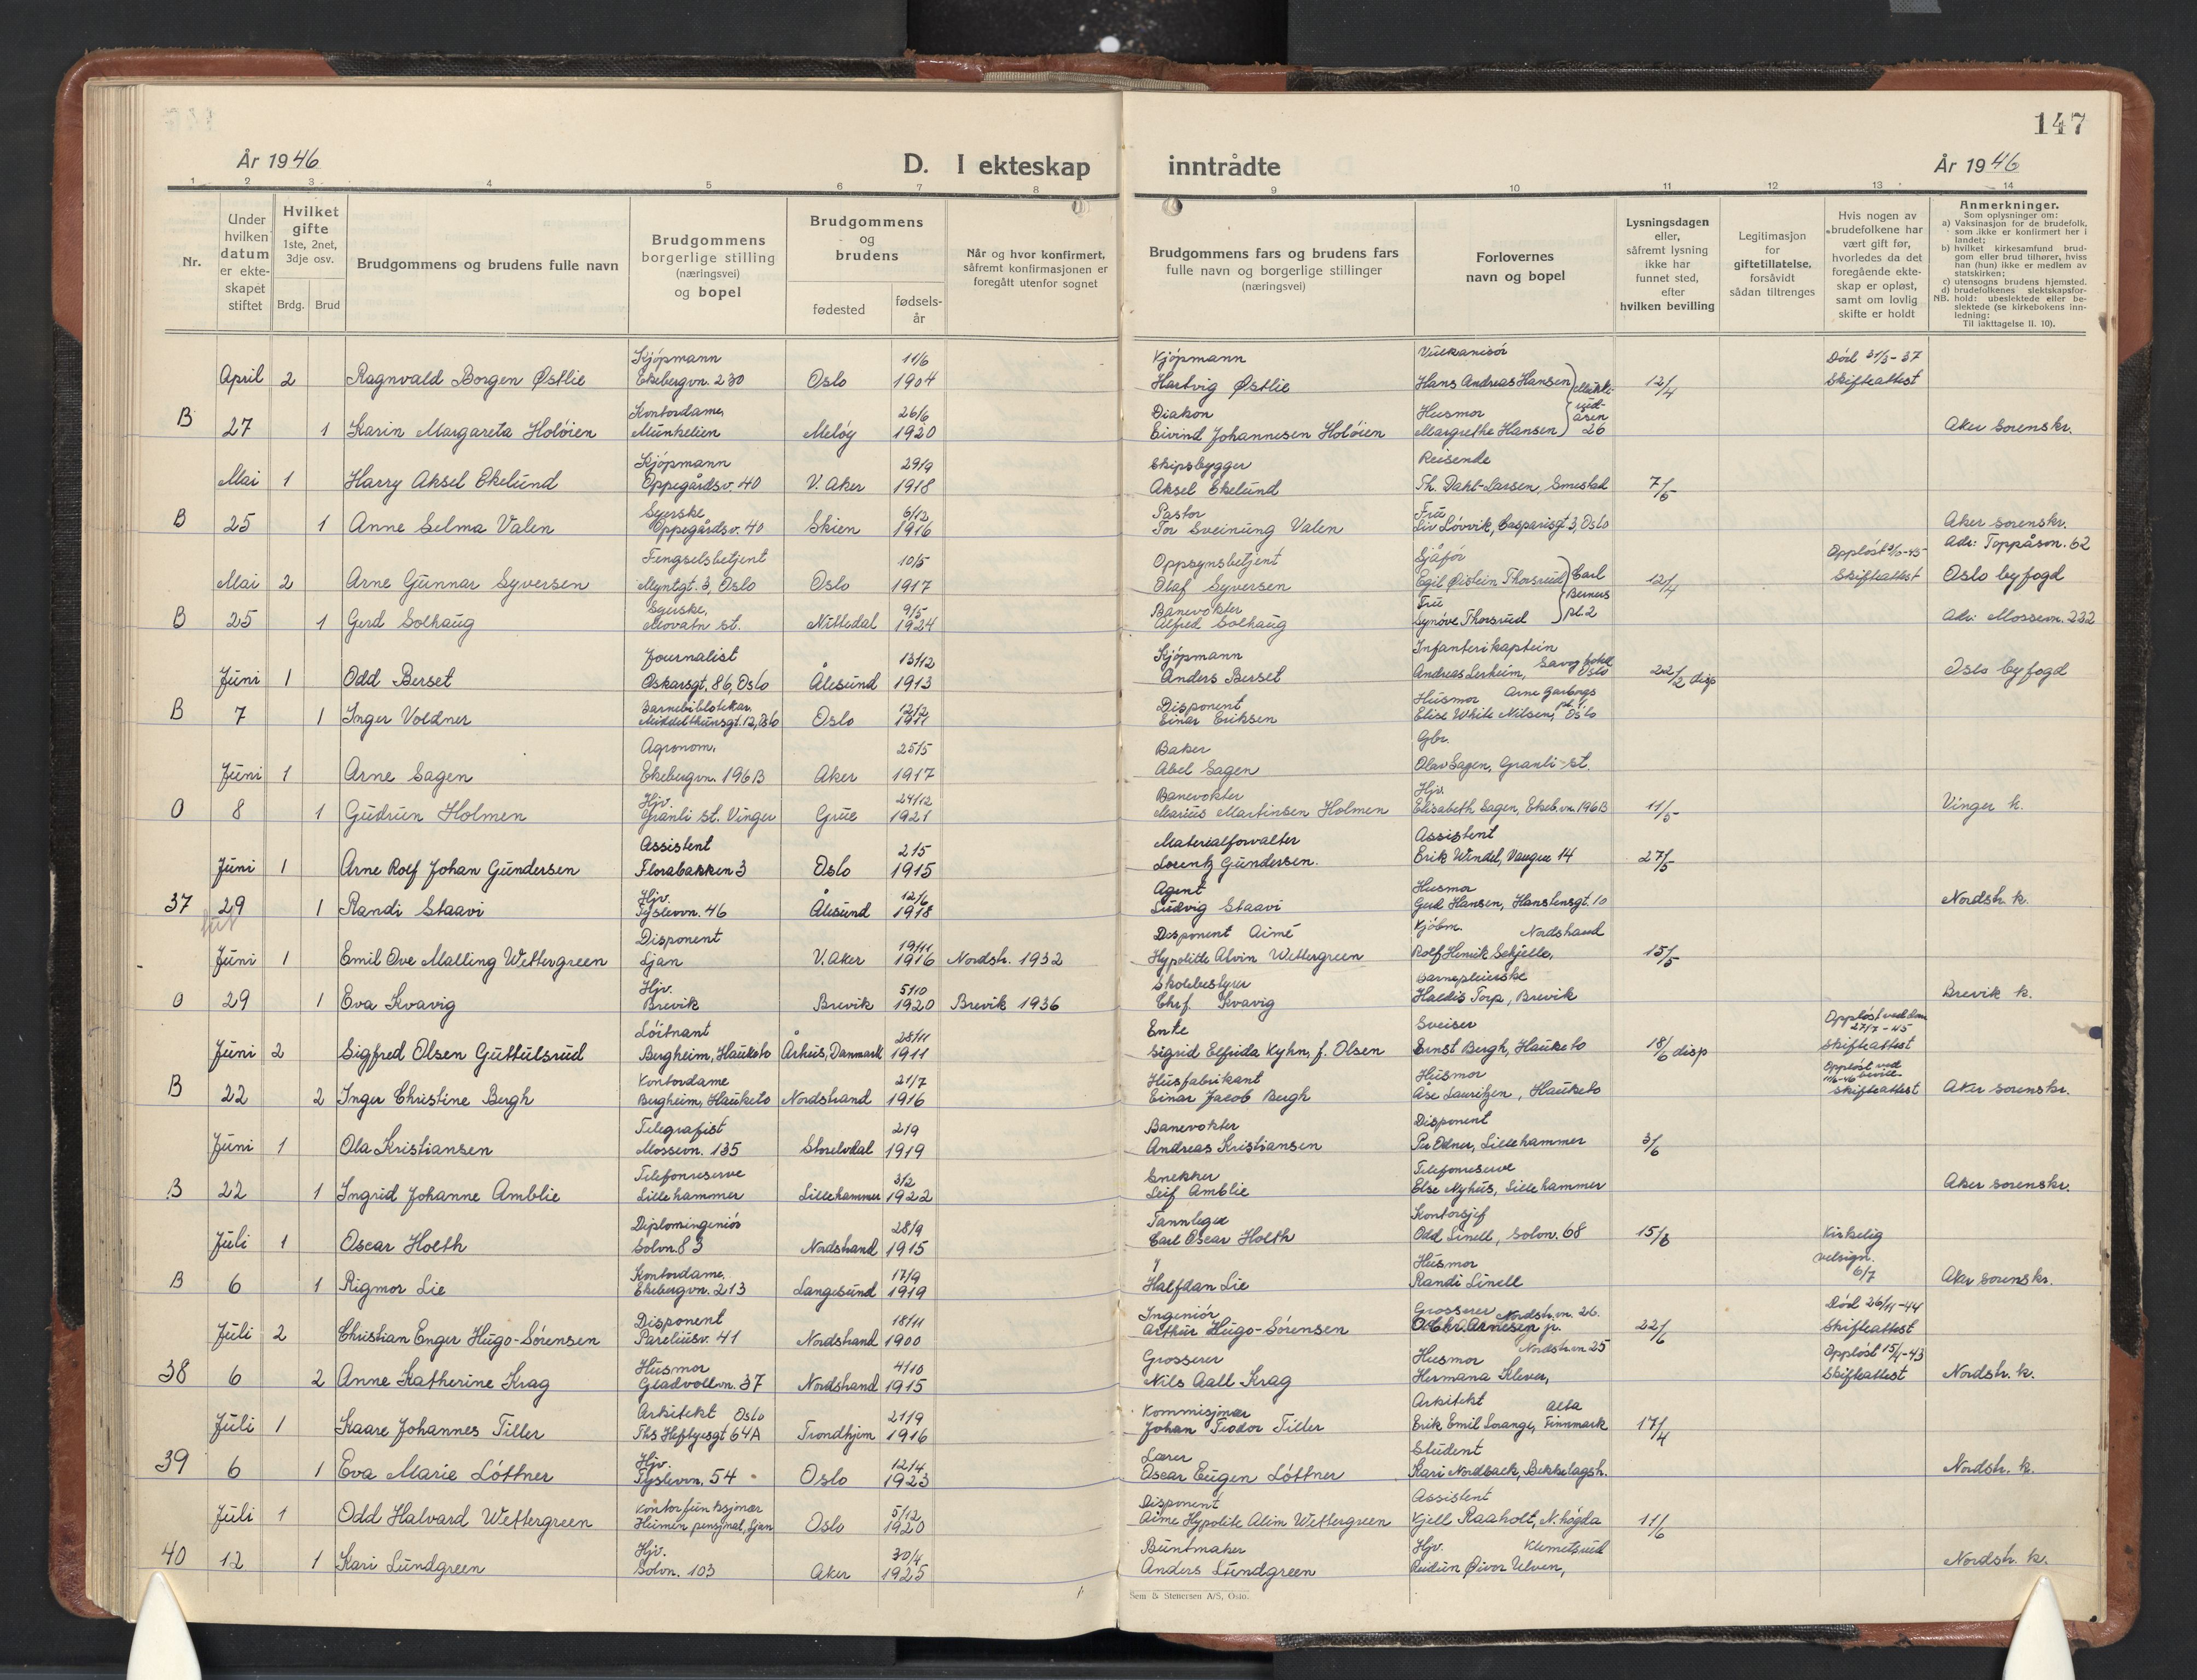 147
År 1946
D. I ekteskap inntrådte
År 1946
1 2 3 4 5 6 7 8 9 10 11 12 13 14
Nr.
Under hvilken datum er ekteskapet stiftet
Hvilket gifte 1ste, 2net, 3dje osv.
Brdg. Brud
Brudgommens og brudens fulle navn
Brudgommens borgerlige stilling (næringsvei) og bopel
Brudgommens og brudens
fødested
fødselsår
Når og hvor konfirmert, såfremt konfirmasjonen er foregått utenfor sognet
Brudgommens fars og brudens fars fulle navn og borgerlige stillinger (næringsvei)
Forlovernes navn og bopel
Lysningsdagen eller, såfremt lysning ikke har funnet sted, efter hvilken bevilling
Legitimasjon for giftetillatelse, forsåvidt sådan tiltrenges
Hvis nogen av brudefolkene har vært gift før, hvorledes da det foregående ekteskap er opløst, samt om lovlig skifte er holdt
Anmerkninger.
Som oplysninger om:
a) Vaksinasjon for de brudefolk, som ikke er konfirmert her i landet;
b) hvilket kirkesamfund brudgom eller brud tilhører, hviss han (hun) ikke er medlem av statskirken;
c) utensogns brudens hjemsted.
d) brudefolkenes slektskapsforhold: ubeslektede eller beslektede (se kirkebokens innledning:
NB.
Til iakttagelse II. 10).
Kjøpmann 11/6 Kjøpmann Vulkanisør Død 31/3-37
April 2 Ragnvald Borgen Østlie Ekebergvn. 230 Oslo 1904 Hartvig Østlie Hans Andreas Hansen 12/4 Skifteattest
Kontordame 26/6 Diakon Husmor
B 27 1 Karin Margareta Holøien Munkelien Meløy 1920 Eivind Johannesen Holøien Margrethe Hansen 26 Aker sorenskr.
Kjøpmann 29/9 Skipsbygger Reisende
Mai 1 Harry Aksel Ekelund Oppegårdsv. 40 V. Aker 1918 Aksel Ekelund Th. Dahl-Larsen, Smestad 7/5
Syerske 6/12 Pastor Frue
B 25 1 Anne Selma Valen Oppegårdsv. 40 Skien 1916 Tor Sveinung Valen Liv Løvvik, Casparisgt 3, Oslo Aker sorenskr.
Adr: Toppåsvn. 62
Fengselsbetjent 10/5 Oppsynsbetjent Sjåfør
Mai 2 Arne Gunnar Syversen Myntgt. 3, Oslo Oslo 1917 Olaf Syversen Egil Øistein Thorsrud Carl Berners pl. 2 12/4 Skifteattest Oslo byfogd
Syerske, 9/5 Banevokter Frue
B 25 1 Gerd Solhaug Movatn st. Nittedal 1924 Alfred Solhaug Synøve Thorsrud Adr: Mossevn. 232
Journalist 13/12 Kjøpmann Infanterikaptein
Juni 1 Odd Berset Oskarsgt. 86, Oslo Ålesund 1913 Anders Berset Andreas Lerheim, Savoy hotell Oslo 22/2 disp Oslo byfogd
Barnebibliotekar, 12/2 Disponent Husmor Arne Garborgs pl. 1.
B 7 1 Inger Voldner Middelthunsgt. 12, Oslo Oslo 1911 Einar Eriksen Elise White Nilsen, Oslo
Agronom, 25/5 Baker Gbr.
Juni 1 Arne Sagen Ekebergvn. 196B Aker 1917 Abel Sagen Olav Sagen, Granli st.
Hjv. 24/12 Banevokter Hjv
O 8 1 Gudrun Holmen Granli st. Vinger Grue 1921 Marius Martinsen Holmen Elisabeth Sagen, Ekeb.vn. 196B 11/5 Vinger k.
Assistent 21/5 Materialforvalter Assistent
Juni 1 Arne Rolf Johan Gundersen Florabakken 3 Oslo 1915 Lorentz Gundersen. Erik Wendel, 14 27/5
Hjv. 12/6 Agent Husmor
37 29 1 Randi Staavi Tyslevvn. 46 Ålesund 1918 Ludvig Staavi Gerd Hansen, Hanstensgt. 10 Nordstr. k.
Disponent 19/11 Disponent Aimé Kjøbm. Nordstrand
Juni 1 Emil Ove Malling Wettergreen Ljan V. Aker 1916 Nordstr. 1932 Hypolitte Alvin Wettergreen Rolf Henrik Schjelle, 15/5
Hjv. 5/10 Skolebestyrer Barnepleierske
O 29 1 Eva Kvavig Brevik Brevik 1920 Brevik 1936 Chrf. Kvavig Haldis Torp, Brevik Brevik k.
Løitnant 28/11 Enke Sveiser Oppløst ved dom 27/7-45
Juni 2 Sigfred Olsen Guttulsrud Bergheim, Hauketo Århus, Danmark 1911 Sigrid Elfrida Kyhn, f. Olsen Ernst Bergh, Hauketo 18/6 disp Skifteattest
Kontordame 21/7 Husfabrikant Husmor Oppløst ved bevill.
B 22 2 Inger Christine Bergh Bergheim, Hauketo Nordstrand 1916 Einar Jacob Bergh Åse Lauritzen, Hauketo Skifteattest Aker sorenskr.
Telegrafist 2/9 Banevokter Disponent
Juni 1 Ola Kristiansen Mossevn. 135 Storelvdal 1919 Andreas Kristiansen Per Odner, Lillehammer 3/6
Telefonreserve 3/2 Snekker Telefonreserve
B 22 1 Ingrid Johanne Amblie Lillehammer Lillehammer 1922 Leif Amblie Else Nyhus, Lillehammer Aker sorenskr.
Diplomingeniør 28/9 Tannlege Kontorsjef
Juli 1 Oscar Holth Solvn. 83 Nordstrand 1915 Carl Oscar Holth Odd Linell, Solvn. 68 15/6 Kirkelig velsign. 6/7
Kontordame, 17/9 Husmor
B 6 1 Rigmor Lie Ekebergvn. 213 Langesund 1919 Halfdan Lie Randi Linell Aker sorenskr.
Disponent 18/11 Ingeniør Grosserer Nordstr.vn. 26. Død 26/11-44
Juli 2 Christian Enger Hugo-Sørensen Pareliusv. 41 Nordstrand 1900 Arthur Hugo-Sørensen O. Chr. Arnesen jr. 22/6 Skifteattest
Husmor 4/10 Grosserer Husmor Nordstr.vn 25 Oppløst 15/4-43
38 6 2 Anne Katherine Krag Gladvollvn. 37 Nordstrand 1915 Nils Aall Krag Hermana Klever, Skifteattest Nordstr. k.
Arkitekt Oslo 21/9 Kommisjonær Arkitekt Alta
Juli 1 Kaare Johannes Tiller Ths Heftyesgt 64A Trondhjem 1916 Johan Teodor Tiller Erik Emil Lorange, Finnmark 17/4
Hjv. 12/4 Lærer Student
39 6 1 Eva Marie Løftner Tyslevvn. 54 Oslo 1923 Oscar Eugen Løftner Kari Nordback, Bekkelagsh. Nordstr. k.
Kontorfunksjonær 5/12 Disponent Assistent
Juli 1 Odd Halvard Wettergreen Heimen pensjonat, Ljan Oslo 1920 Aime Hypolite Alvin Wettergreen Kjell Raaholt, N. høgda 11/6
Hjv. 30/4 Buntmaker Hjv. Klemetsrud
40 12 1 Kari Lundgreen Solvn. 103 Aker 1925 Anders Lundgreen Reidun Øivor Ulven, Nordstr. k.
Sem & Stenersen A/S, Oslo.